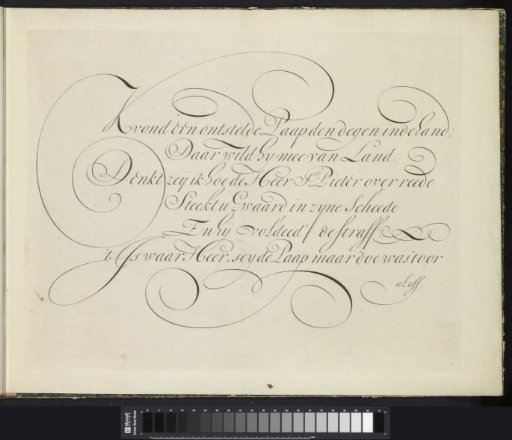 K vond een ontstelde Paap den degen inde hand;
Daar wild hy mee van Land
Denkt zeij ik hoe de Heer St. Pieter over reede
Steekt u Zwaard in zyne Scheede
En hij voldeed / de straff
't Is waar, Heer, sey de Paap maar doe was't oor
al aff.